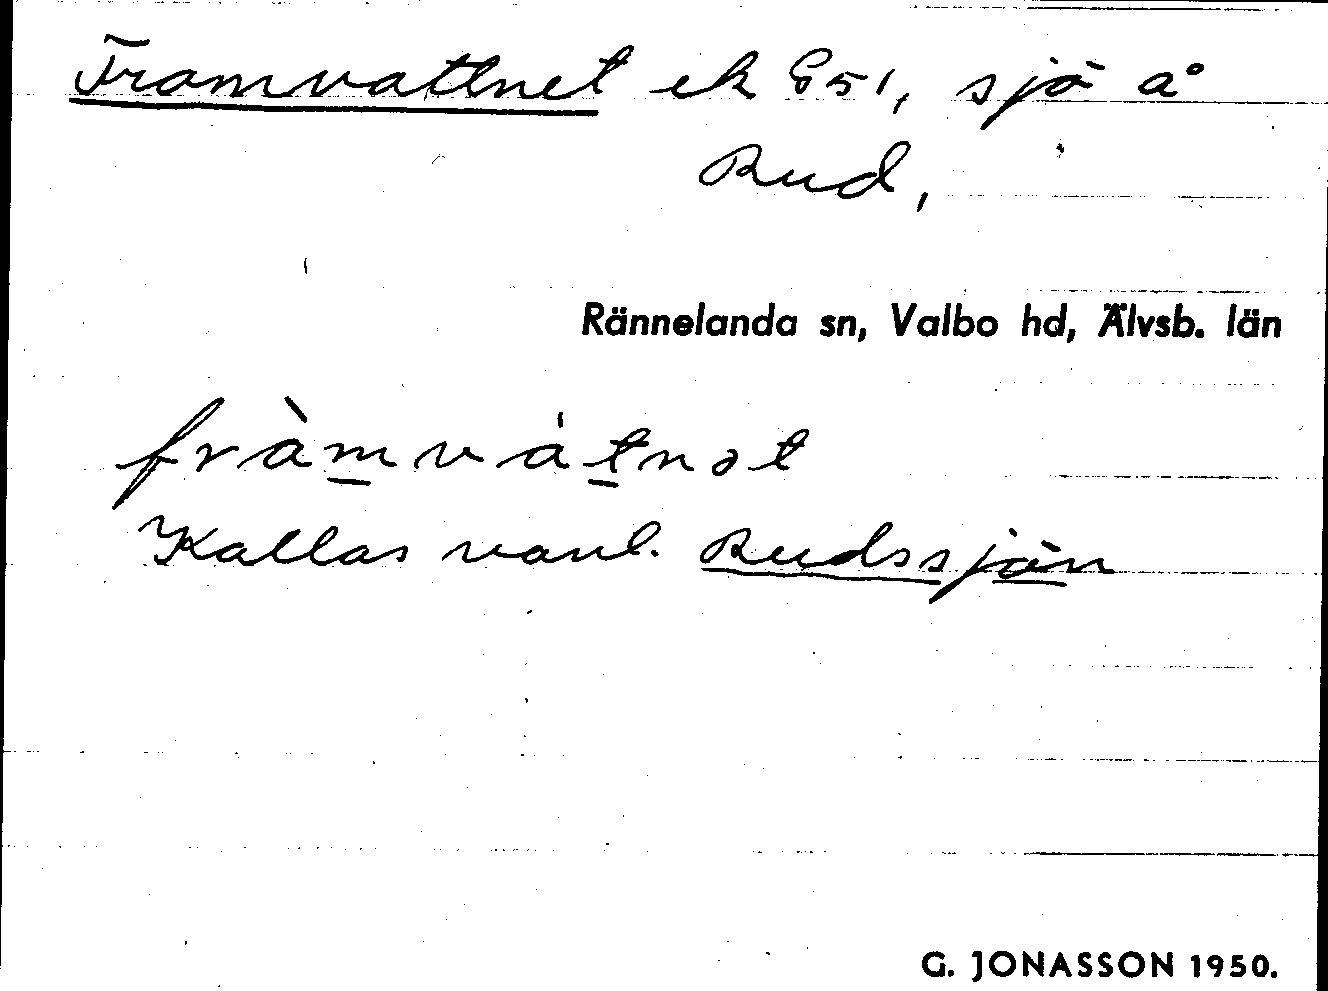 Framvattnet ek 851, sjö å
Rud,
Rännelanda sn, Valbo hd, Älvsb. län
fràm̲vát̲nət
Kallas vanl. Rudssjön
G. JONASSON 1950.